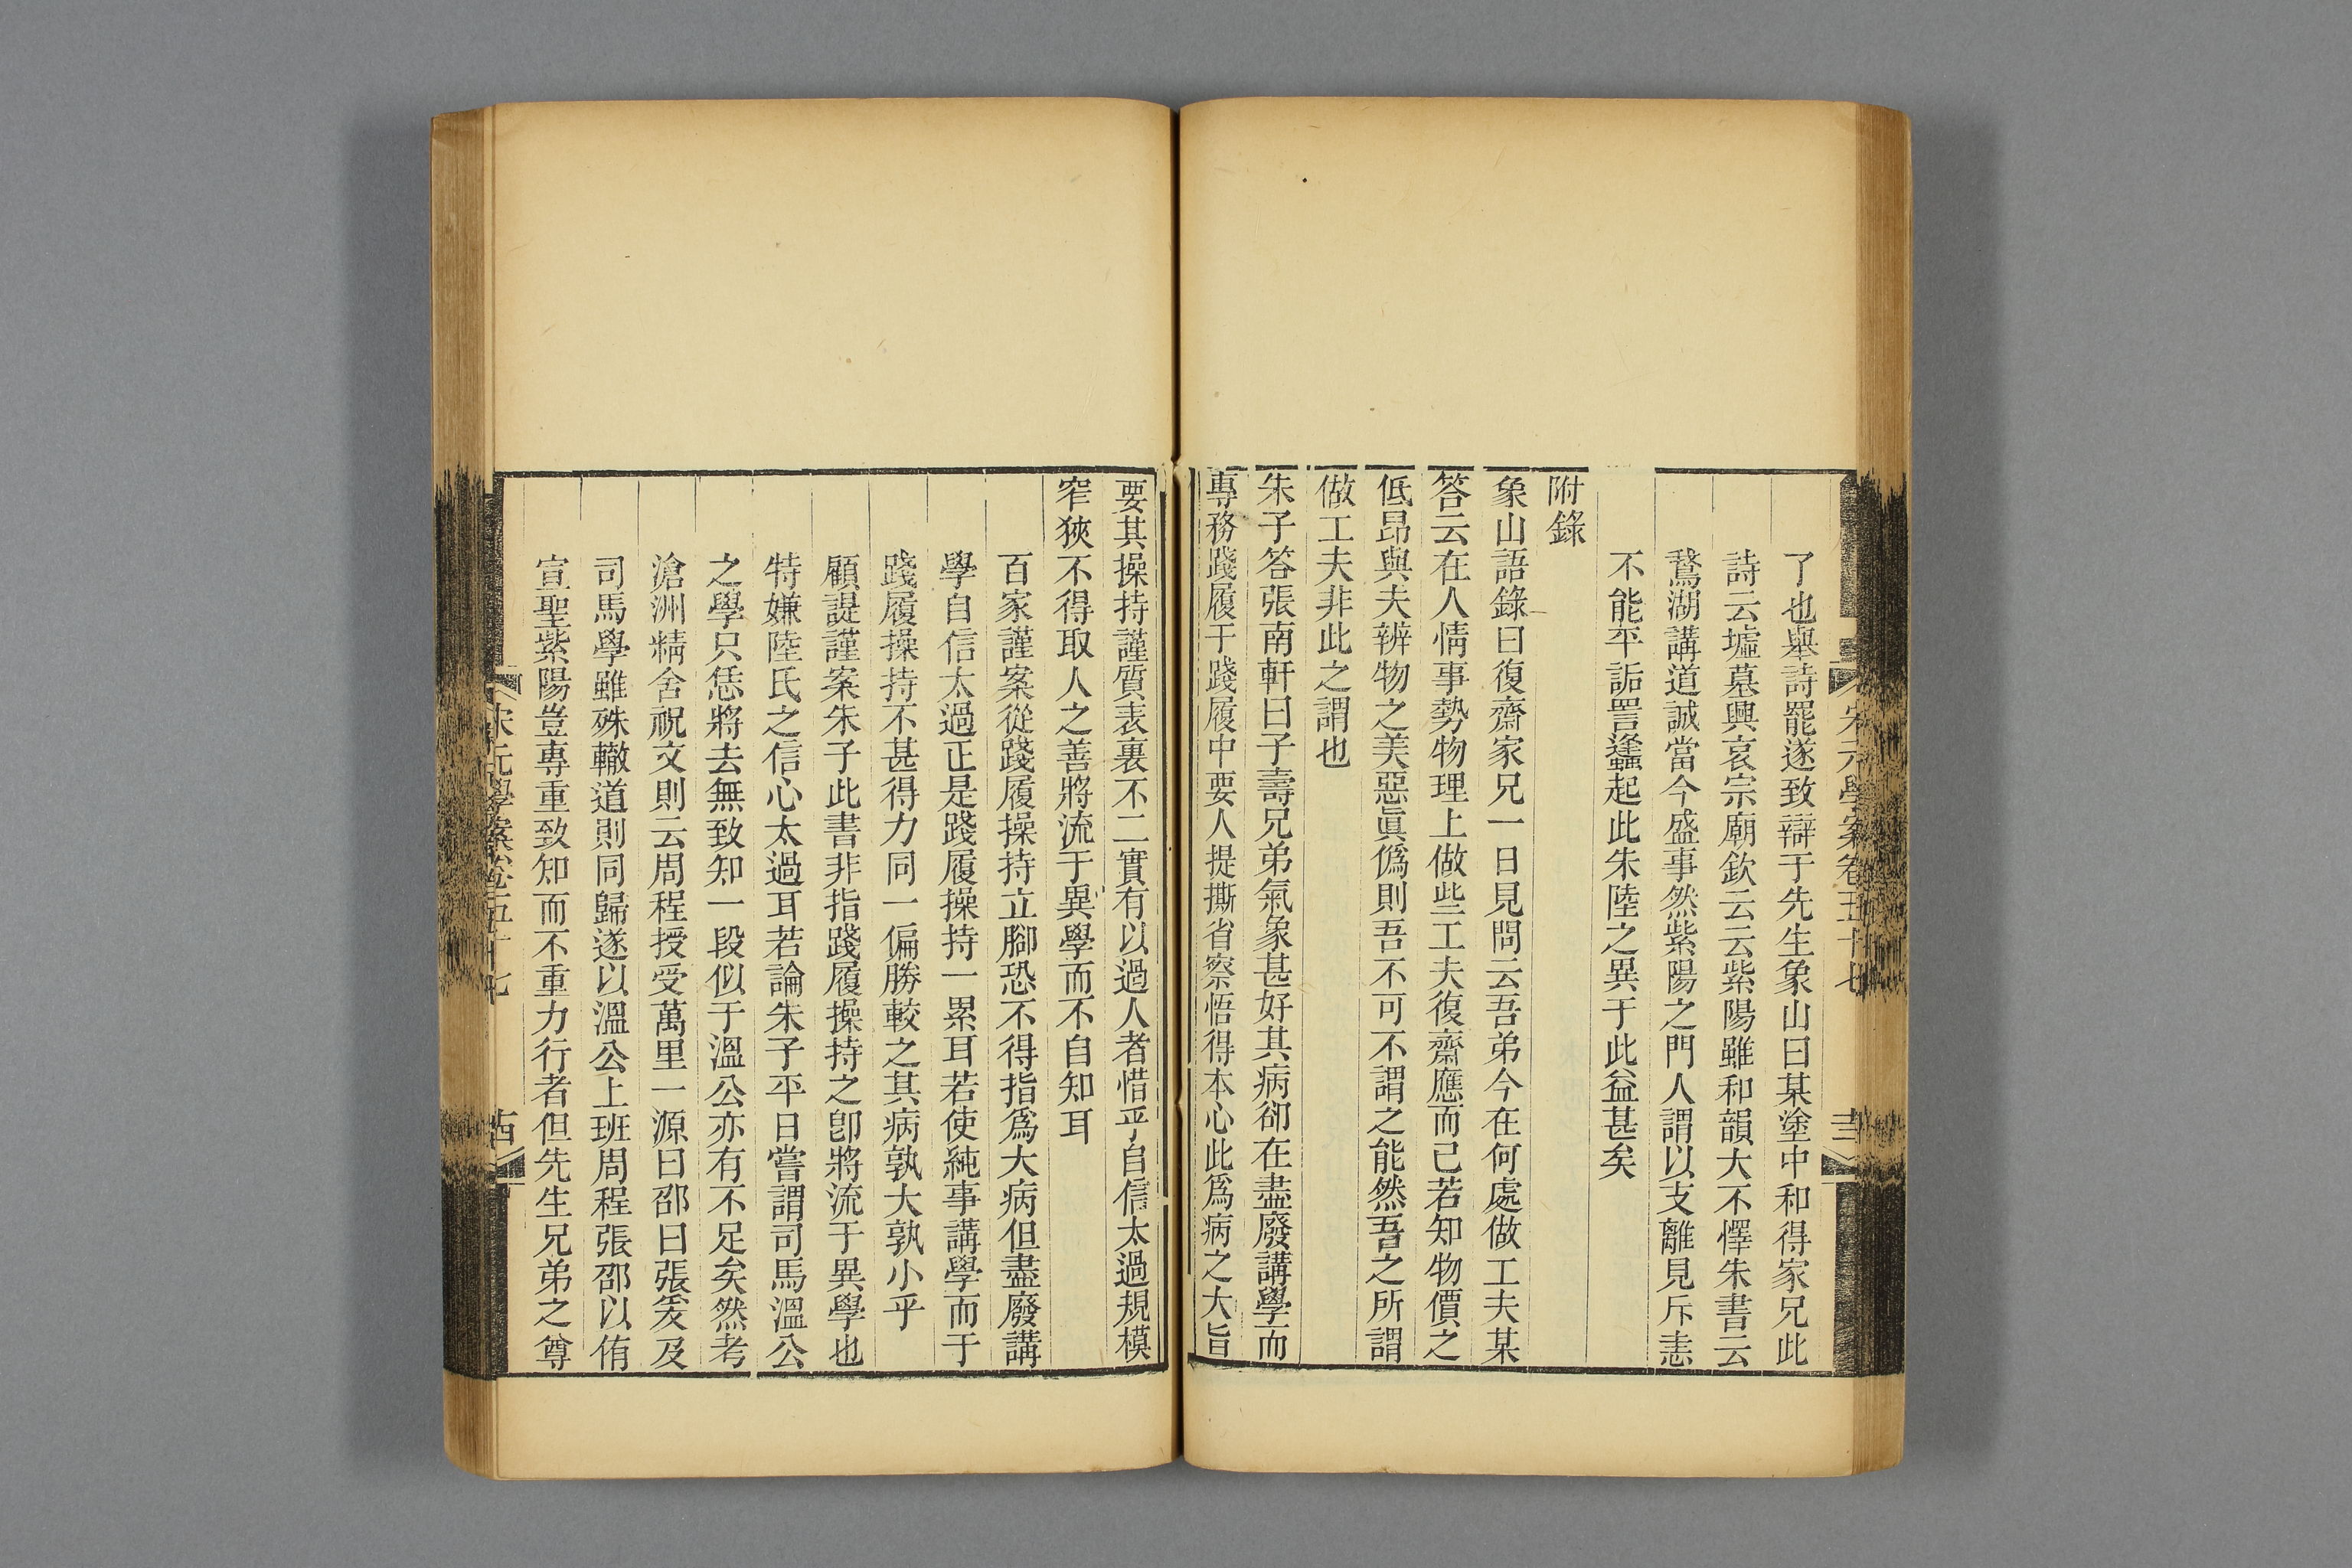 宋元學案卷五十七
了也舉詩罷遂致辯于先生象山曰某塗中和得家兄此
詩云墟墓興哀宗廟欽云云紫陽雖和韻大不懌朱書云
鵞湖講道誠當今盛事然紫陽之門人謂以支離見斥恚
不能平詬詈蠭起此朱陸之異于此益甚矣
附錄
象山語錄曰復齋家兄一日見問云吾弟今在何處做工夫某
答云在人情事勢物理上做些工夫復齋應而已若知物價之
低昂與夫辨物之美惡眞僞則吾不可不謂之能然吾之所謂
做工夫非此之謂也
朱子答張南軒曰子壽兄弟氣象甚好其病卻在盡廢講學而
專務踐履于踐履中要人提撕省察悟得本心此爲病之大旨
要其操持謹質表裏不二實有以過人者惜乎自信太過規模
窄狹不得取人之善將流于異學而不自知耳
百家謹案從踐履操持立腳恐不得指爲大病但盡廢講
學自信太過正是踐履操持一累耳若使純事講學而于
踐履操持不甚得力同一偏勝較之其病孰大孰小乎
顧諟謹案朱子此書非指踐履操持之卽將流于異學也
特嫌陸氏之信心太過耳若論朱子平日嘗謂司馬溫公
之學只恁將去無致知一段似于溫公亦有不足矣然考
滄洲精舍祝文則云周程授受萬里一源曰邵曰張爰及
司馬學雖殊轍道則同歸遂以溫公上班周程張邵以侑
宣聖紫陽豈專重致知而不重力行者但先生兄弟之尊
宋元學案卷五十七